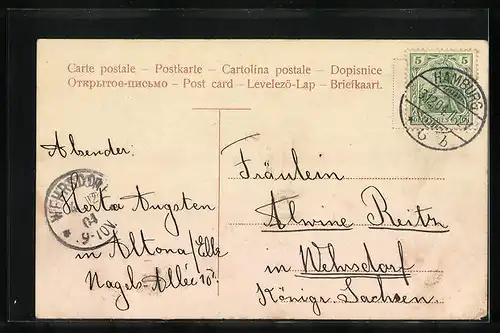 Carte postale – Postkarte – Cartolina postale – Dopisnice
Открытое-письмо – Post card – Levelező-Lap – Briefkaart.
5 5
HAMBURG
Absender:
Herta Angsten
in Altona/Elbe
Nagels Allée 10
WEHRSDORF
04
9-10V
Fräulein
Alwine Reitz
in Wehrsdorf
Königr. Sachsen.